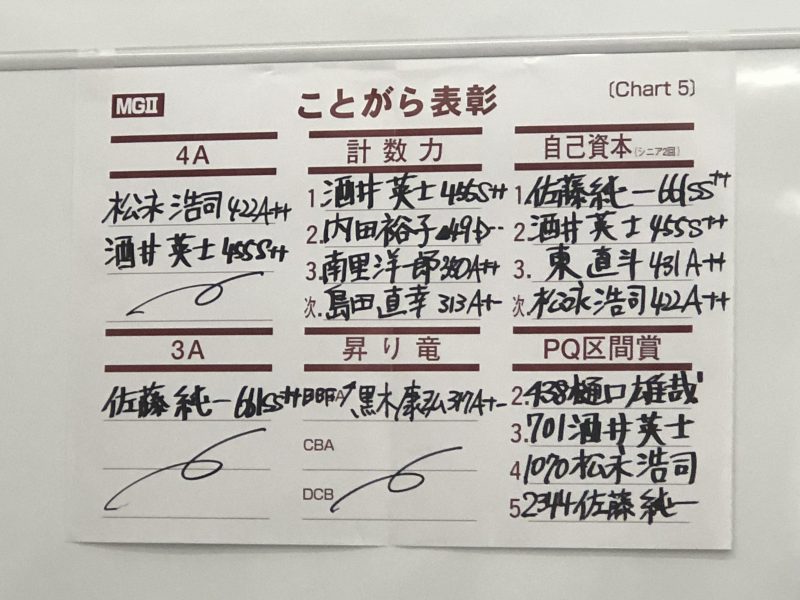 MGⅡ
ことがら表彰
〔Chart 5〕
4A
松永 浩司 422A++
酒井 英士 455S++
計数力
1 酒井 英士 455S++
2. 内田 裕子 ▲49D--
3. 南里 洋一郎 350A++
次. 島田 直幸 313A+-
自己資本(シニア2回)
1 佐藤 純一 661SS++
2 酒井 英士 455S++
3. 東 直斗 431A++
次. 松永 浩司 422A++
3A
佐藤 純一 661SS++
昇り竜
黒木 康弘 317A+-
CBA
DCB
PQ区間賞
2. 438 樋口 雄哉
3. 701 酒井 英士
4 1070 松永 浩司
5 2344 佐藤 純一